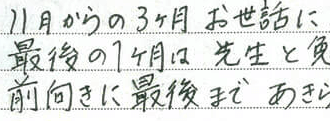 11月からの3ヶ月 お世話に
最後の1ヶ月は 先生と
前向きに最後まで あきら